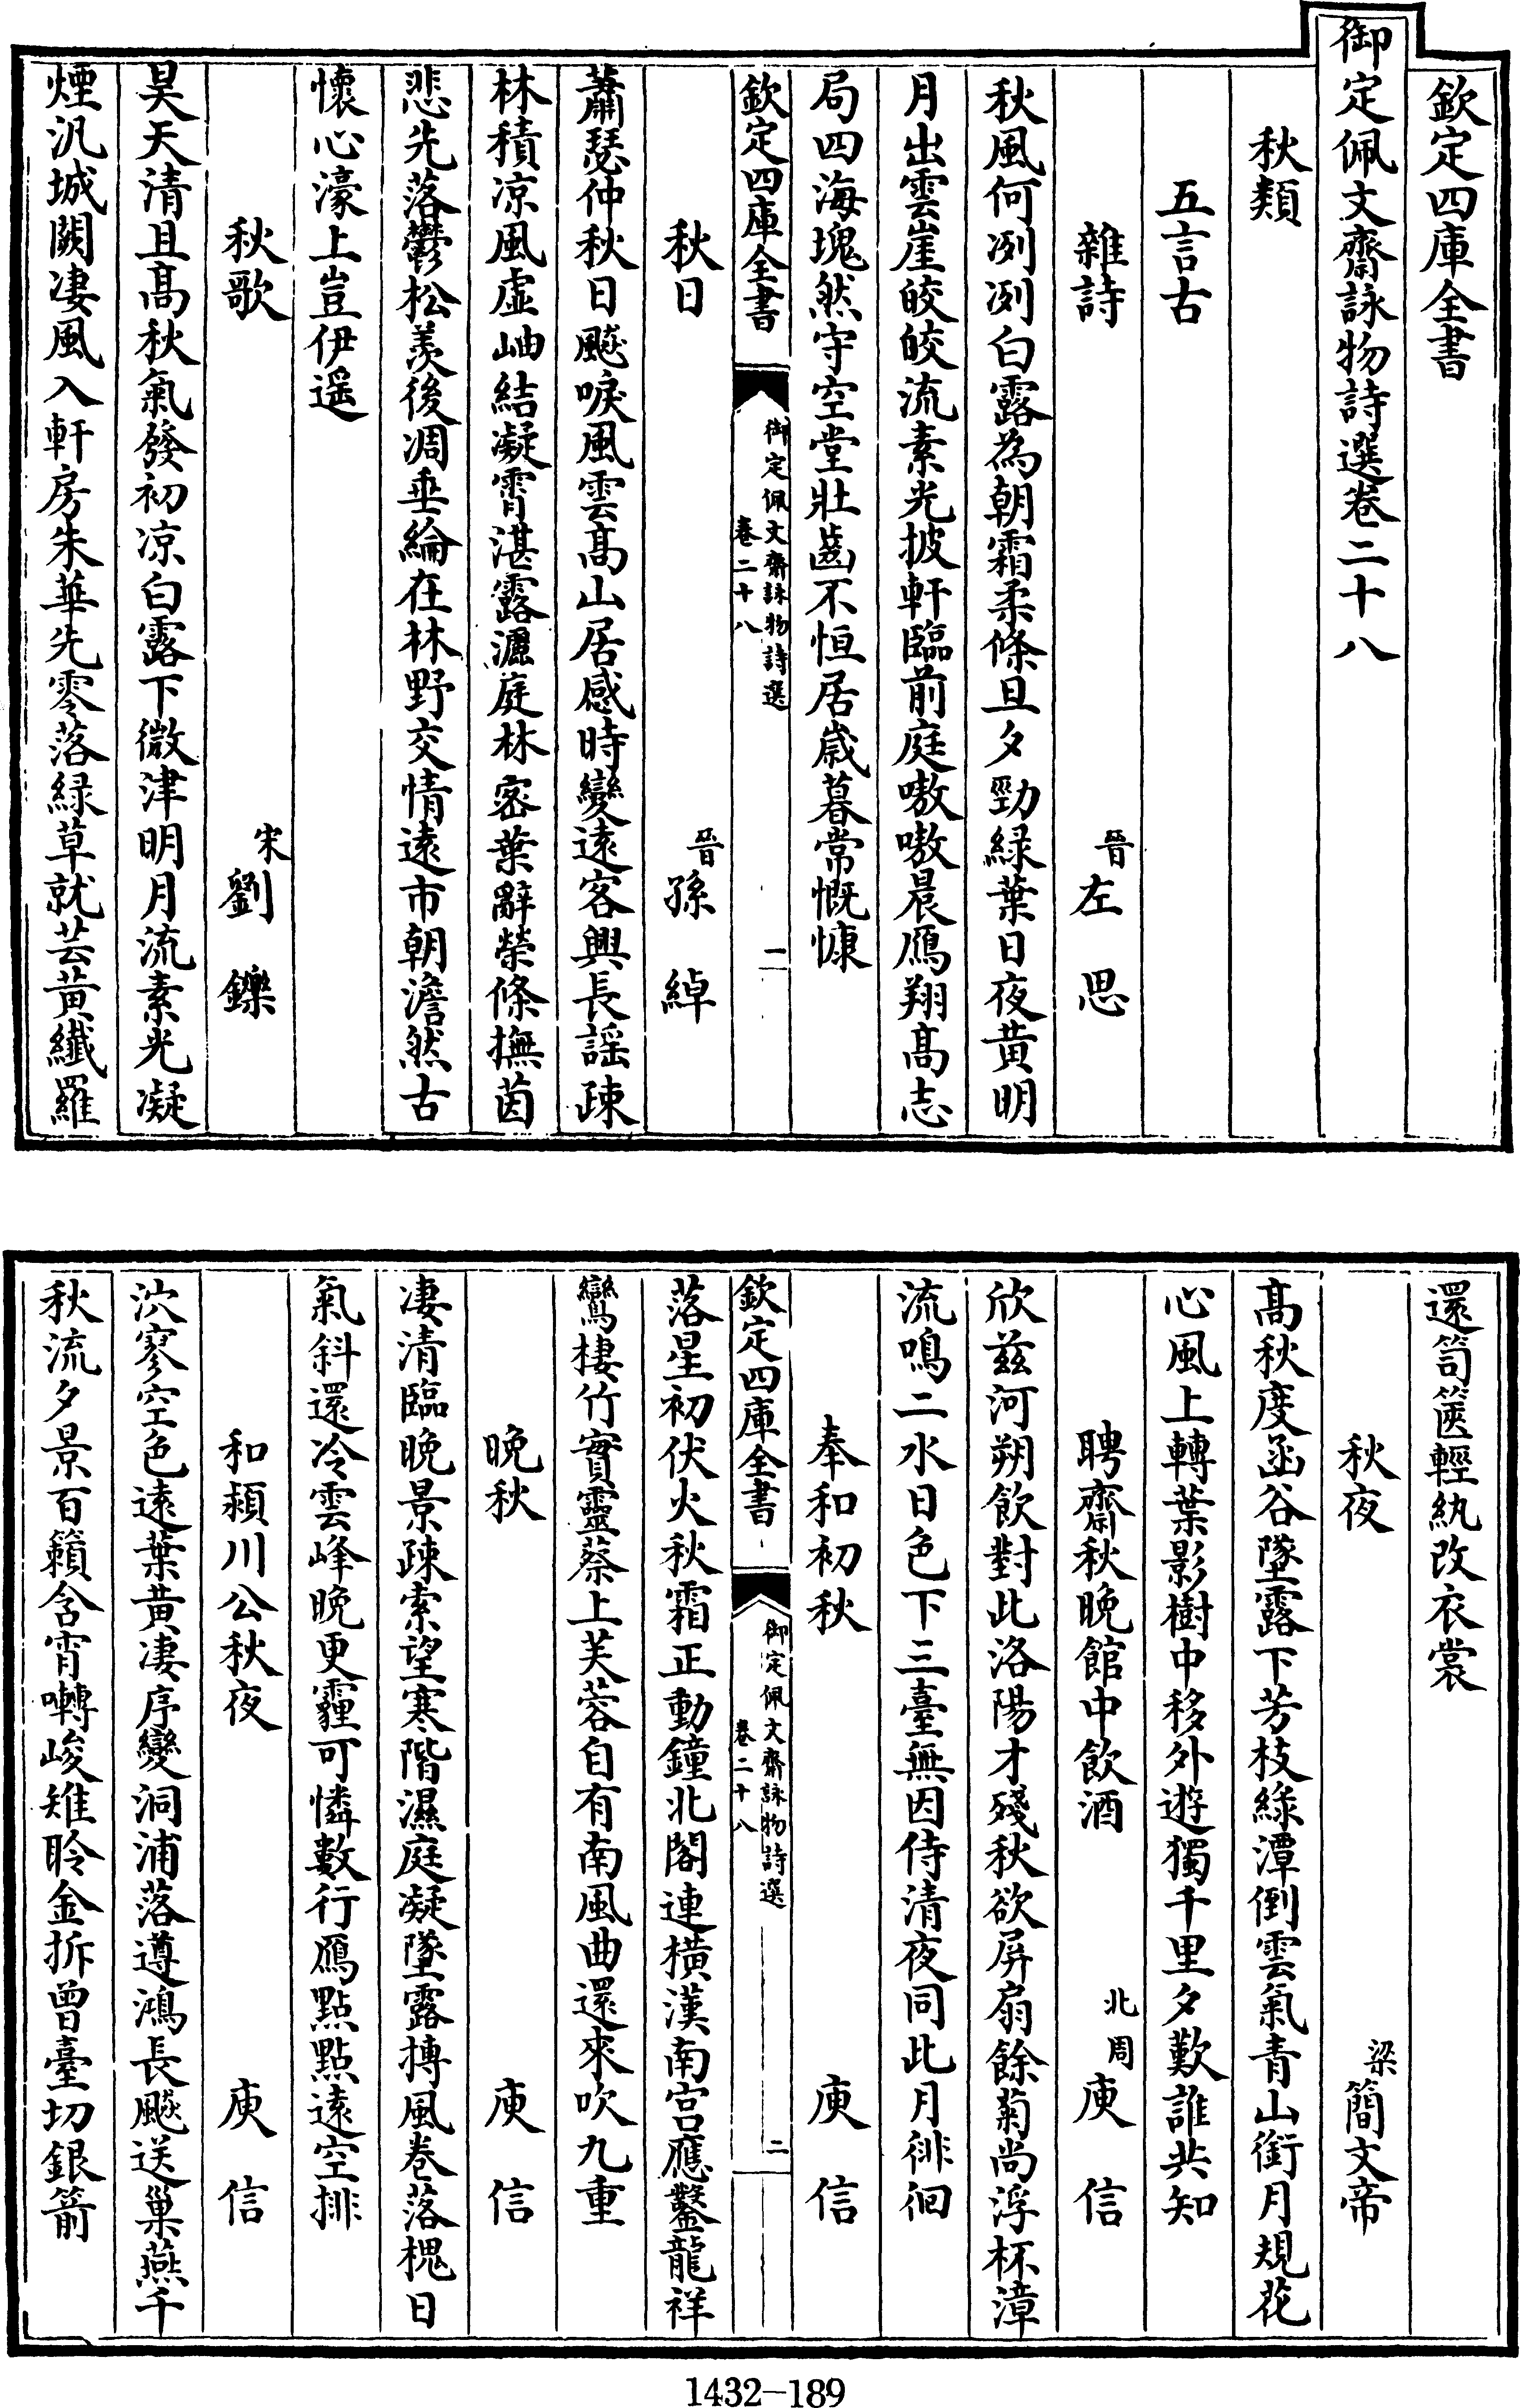 欽定四庫全書
御定佩文齋詠物詩選卷二十八
秋類
五言古
雜詩 晉左思
秋風何冽冽白露為朝霜柔條旦夕勁緑葉日夜黄明
月出雲崖皎皎流素光披軒臨前庭嗷嗷晨鴈翔髙志
局四海塊然守空堂壯齒不恒居歲暮常慨慷
欽定四庫全書 御定佩文齋詠物詩選 卷二十八 一
秋日 晉孫綽
蕭瑟仲秋日飇唳風雲髙山居感時變遠客興長謡疎
林積凉風虛岫結凝霄湛露灑庭林宻葉辭榮條撫茵
悲先落鬱松羨後凋垂綸在林野交情遠市朝澹然古
懷心濠上豈伊遥
秋歌 宋劉鑠
昊天清且髙秋氣發初凉白露下微津明月流素光凝
煙汎城闕凄風入軒房朱華先零落緑草就芸黄纖羅
還笥篋輕紈改衣裳
秋夜 梁簡文帝
髙秋度函谷墜露下芳枝緑潭倒雲氣青山銜月規花
心風上轉葉影樹中移外遊獨千里夕歎誰共知
聘齊秋晚館中飲酒 北周庾信
欣兹河朔飲對此洛陽才殘秋欲屏扇餘菊尚浮杯漳
流鳴二水日色下三臺無因侍清夜同此月徘徊
奉和初秋 庾信
欽定四庫全書 御定佩文齋詠物詩選 卷二十八 二
落星初伏火秋霜正動鐘北閣連横漢南宫應鑿龍祥
鸞棲竹實靈蔡上芙蓉自有南風曲還來吹九重
晚秋 庾信
凄清臨晚景疎索望寒階濕庭凝墜露摶風卷落槐日
氣斜還冷雲峰晚更霾可憐數行鴈點點遠空排
和潁川公秋夜 庾信
泬寥空色遠葉黄凄序變洞浦落遵鴻長飇送巢燕千
秋流夕景百籟含宵囀峻雉聆金拆曾臺切銀箭
1432—189